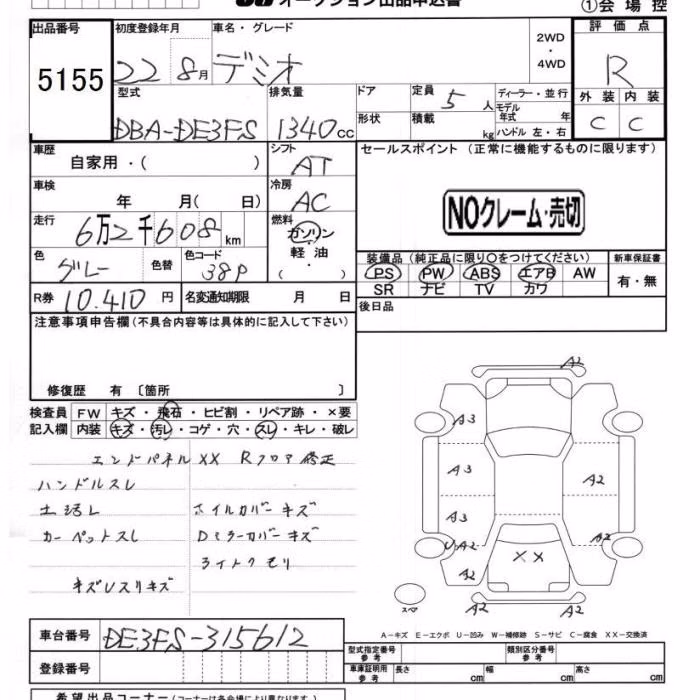 オークション出品申込書
①会場控
出品番号 初度登録年月 車名・グレード 評価点
5155 22 8月 デミオ 2WD・4WD R
型式 排気量 ドア 定員 5人 ディーラー・並行 外装 内装
DBA-DE3FS 1340cc 形状 積載 kg モデル年式 年 ハンドル 左・右 C C
車歴 自家用・( ) シフト AT セールスポイント (正常に機能するものに限ります)
車検 年 月( 日) 冷房 AC
NOクレーム・売切
走行 6万2千608km 燃料 ガソリン・軽油・( )
色 グレー 色替 色コード 38P
装備品(純正品に限り〇をつけてください) 新車保証書
PS PW ABS エアB AW 有・無
SR ナビ TV カワ
R券 10.410円 名変通知期限 月 日 後日品
注意事項申告欄(不具合内容等は具体的に記入して下さい)
修復歴 有〔箇所 〕
検査員記入欄 FW キズ・飛石・ヒビ割・リペア跡・×要
内装 キズ・汚レ・コゲ・穴・スレ・キレ・破レ
エンドパネルXX Rフロア修正
ハンドルスレ
土活レ ホイルカバーキズ
カーペットスレ Dミラーカバーキズ
ライトクモリ
キズレスリキズ
A2
A3
A3 A2
A3
UA2 A2
XX
A2
スペ A2 A2
A-キズ E-エクボ U-凹み W-補修跡 S-サビ C-腐食 XX-交換済
車台番号 DE3FS-315612
型式指定番号 参考 類別区分番号 参考
登録番号 車庫証明用 参考 長さ cm 幅 cm 高さ cm
希望出品コーナー(コーナーは各会場により異なります。)